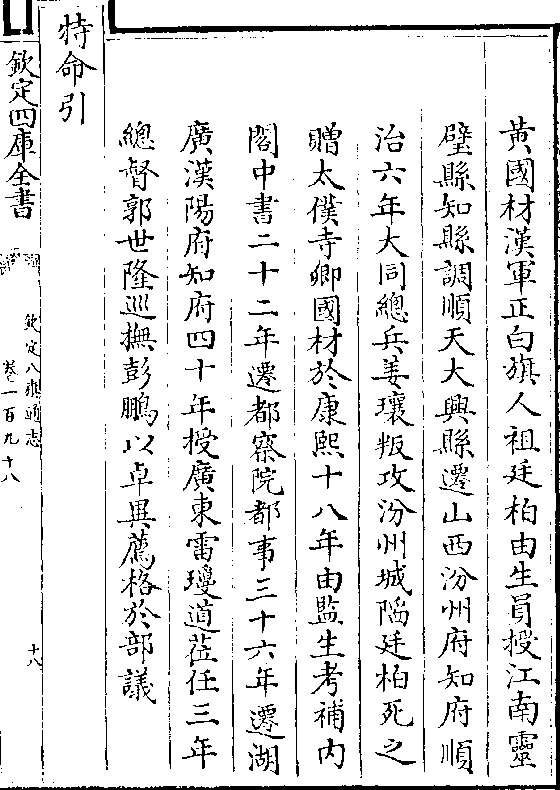 黃國材漢軍正白旗人祖廷柏由生員授江南靈
璧縣知縣調順天大興縣遷山西汾州府知府順
治六年大同總兵姜瓖叛攻汾州城陷廷柏死之
贈太僕寺卿國材於康熙十八年由監生考補内
閣中書二十二年遷都察院都事三十六年遷湖
廣漢陽府知府四十年授廣東雷瓊道莅任三年
總督郭世隆巡撫彭鵬以卓異薦格於部議
特命引
欽定四庫全書
欽定八旗通志
卷一百九十八
十八